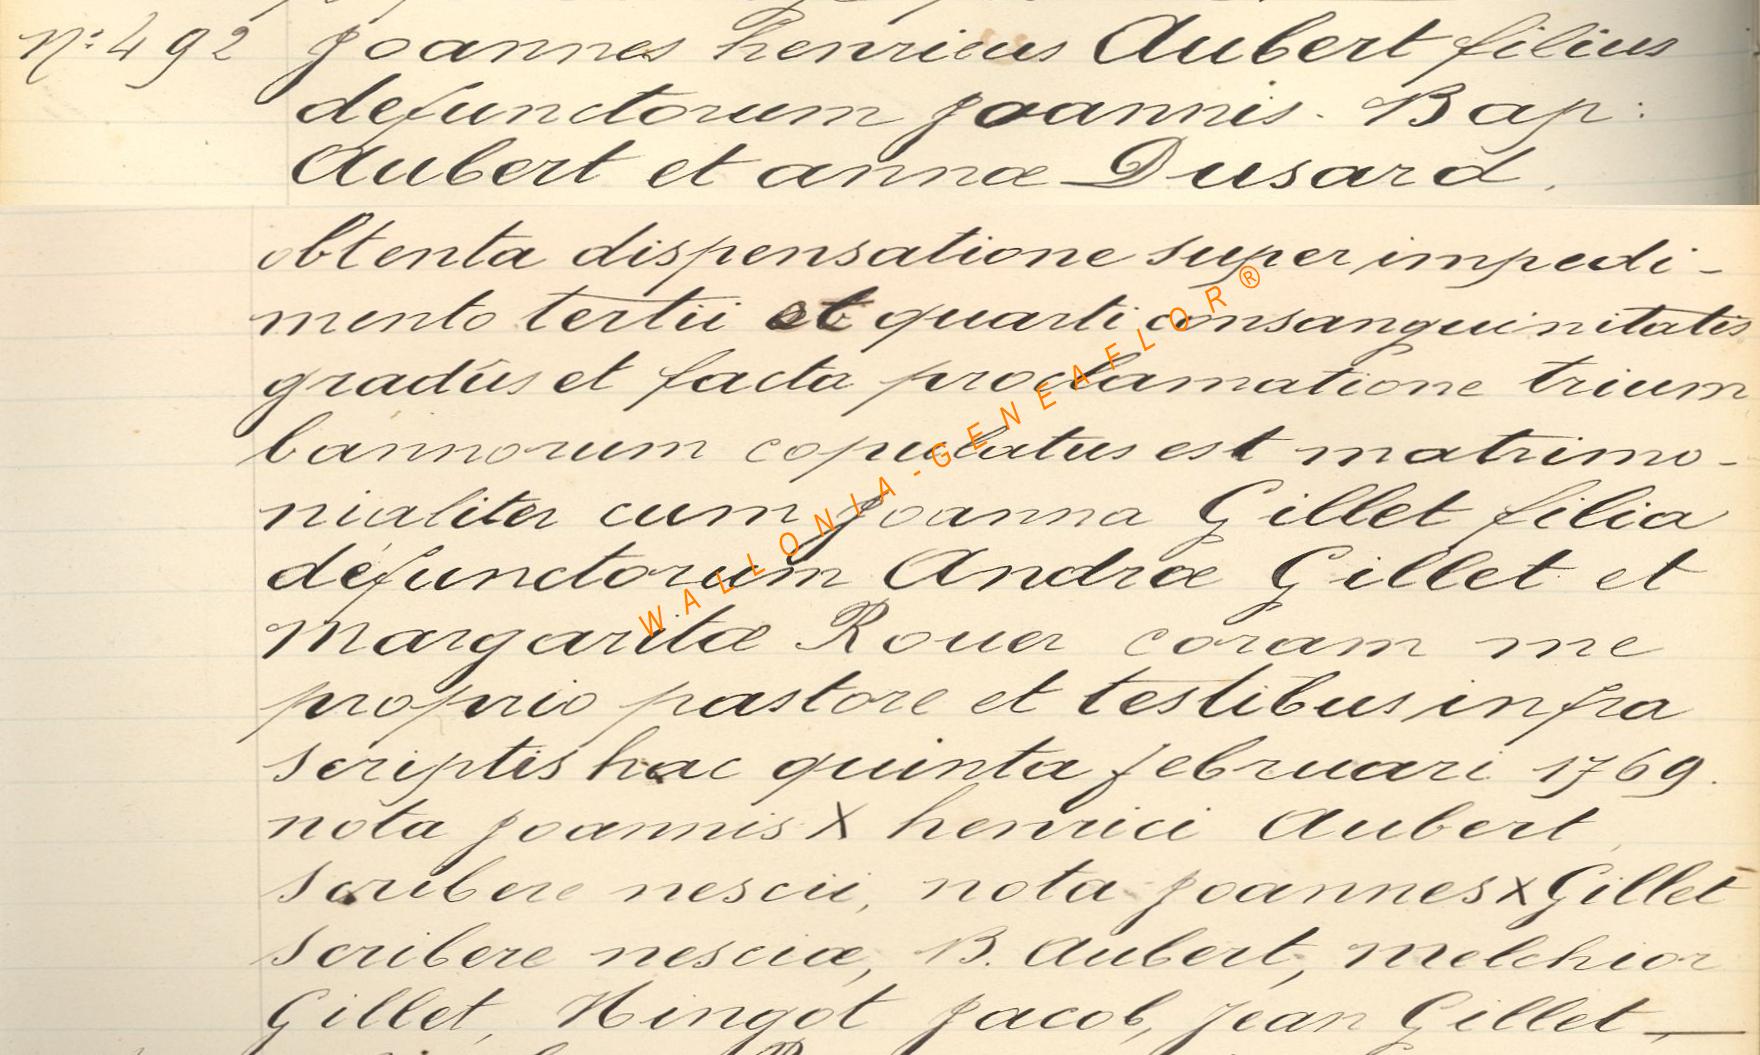 n: 492 Joannes henricus Aubert filius
defunctorum Joannis. Bap:
Aubert et annæ Dusard.
obtenta dispensatione super impedi-
mento tertii et quarti consanguinitatis
gradûs et facta proclamatione trium
bannorum copulatus est matrimo-
nialiter cum Joanna Gillet filia
defunctorum Andræ Gillet et
Margaritæ Rouer coram me
proprio pastore et testibus infra
scriptis hac quinta februari 1769.
nota Joannis X henrici Aubert
scribere nescii, nota Joannes X Gillet
scribere nesciæ, B. Aubert, Melchior
Gillet, Hingot Jacob, Jean Gillet —
WALLONIA-GENEAFLOR®